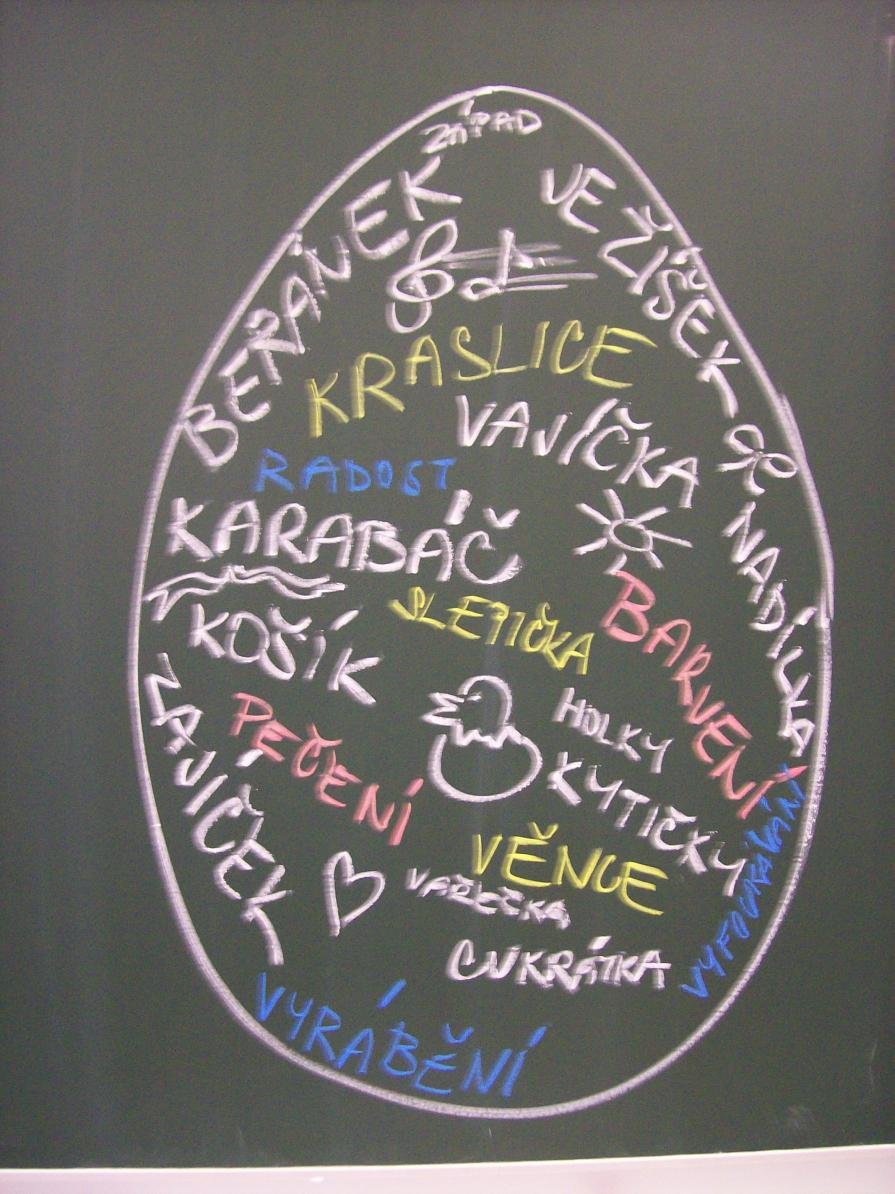 ZÁPAD
BERÁNEK
VEŽÍŠEK
KRASLICE
VAJÍČKA
RADOST
KARABÁČ
NADÍLKA
SLEPIČKA
BARVENÍ
KOŠÍK
ZAJÍČEK
PEČENÍ
HOLKY
KYTIČKY
VĚNCE
VYFOUKÁVÁNÍ
CUKRÁTKA
VYRÁBĚNÍ